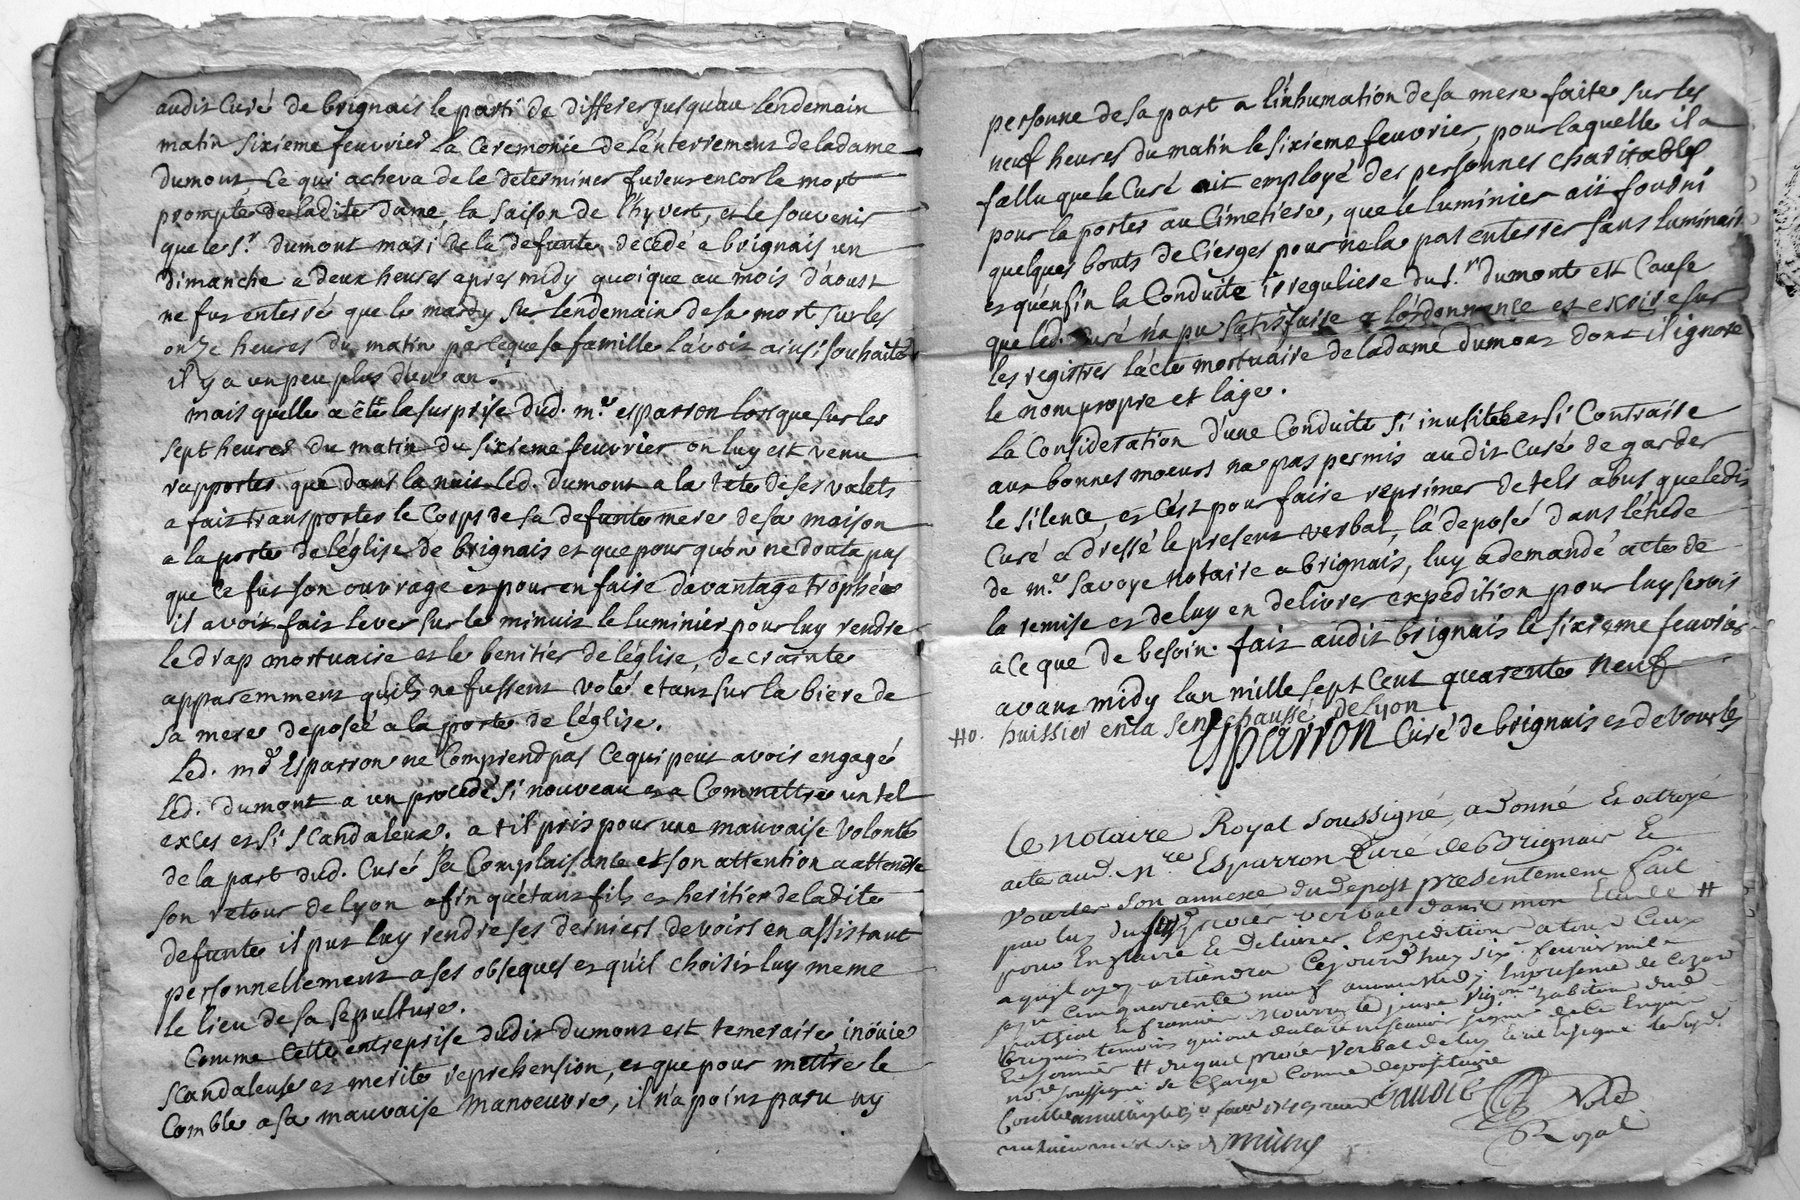 audit Curé de brignais le parti de differer jusqu'au lendemain
matin sixieme feuvrier la Ceremonie de l'enterrement de ladame
Dumont, Ce qui acheva de le determiner fut encor la mort
prompte de ladite dame, la saison de l'hyvert, et le souvenir
que le Sr. Dumont mari de la defunte, décédé a brignais un
Dimanche a deux heures apres midy quoique au mois d'aoust
ne fut enterré que le mardy sur lendemain de sa mort sur les
onze heures du matin parceque sa famille l'avoit ainsi souhaité
il y a un peu plus d'un an.
mais quelle a été la surprise dud. mre. esparron lorsque sur les
sept heures du matin du sixieme feuvrier on luy est venu
rapporter que dans la nuit led. Dumont a la tete de ses valets
a fait transporter le Corps de sa defunte mere de sa maison
a la porte de l'église de brignais et que pour qu'on ne douta pas
que Ce fut son ouvrage et pour en faire davantage trophée
il avoit fait lever sur le minuit le luminier pour luy rendre
le drap mortuaire et le benitier de l'église, de crainte
apparemment qu'ils ne fussent volé etant sur la biere de
sa mere deposée a la porte de l'église.
Led. mre Esparron ne Comprend pas Ce qui peut avoir engagé
Led. Dumont a un procedé si nouveau et a Commettre un tel
exces et si scandaleux. a t il pris pour une mauvaise volonté
de la part dud. Curé sa Complaisance et son attention a attendre
son retour de lyon afin qu'étant fils et heritier de ladite
defunte il put luy rendre ses derniers devoirs en assistant
personnellement a ses obseques et qu'il choisit luy meme
le lieu de sa sepulture.
Comme Cette entreprise dudit Dumont est temeraire inouie
scandaleuse et merite reprehension, et que pour mettre le
Comble a sa mauvaise manoeuvre, il n'a point paru ny
personne de sa part a l'inhumation de sa mere faite sur les
neuf heures du matin le sixieme feuvrier, pour laquelle il a
fallu que le Curé ait employé des personnes charitables
pour la porter au Cimetiere, que le luminier ait fourni
quelques bouts de Cierges pour ne la pas enterrer sans luminaire
et qu'enfin la Conduite irreguliere du sr. dumont est Cause
que led. Curé n'a pu satisfaire a l'ordonnance et escrire sur
les registres l'acte mortuaire de ladame dumont dont il ignore
le nom propre et l'age.
La Consideration d'une Conduite si inusitée et si Contraire
aux bonnes moeurs n'a pas permis audit Curé de garder
le silence, et C'est pour faire reprimer de tels abus que ledit
Curé a dressé le present verbal, l'a deposé dans l'étude
de mre. Savoye notaire a brignais, luy a demandé acte de
la remise et de luy en delivrer expédition pour luy servir
a Ce que de besoin. fait audit brignais le sixieme feuvrier
avant midy l'an mille sept Cent quarente neuf
Ho. huissier en la senechaussé de Lyon
Esparron Curé de brignais et de Vourles
Le notaire Royal soussigné, a donné Et octroyé
acte aud. Mre Esparron Curé de Brignais Et
Vourles son annexe du depost presentement fait
par luy du procés verbal dans mon Etude #
pour En faire Et delivrer Expedition a tous Ceux
a qu'il apartiendra Cejourd'huy six feuvrier mil
sept Cent quarente neuf avant Midy En presence de
et francois le jeune habitant dud.
Brignais temoins qui ont declaré ne scavoir signer de Ce Enquis
procés Verbal
soussigné se Charge Comme depositaire
Savoie Nore
Royal